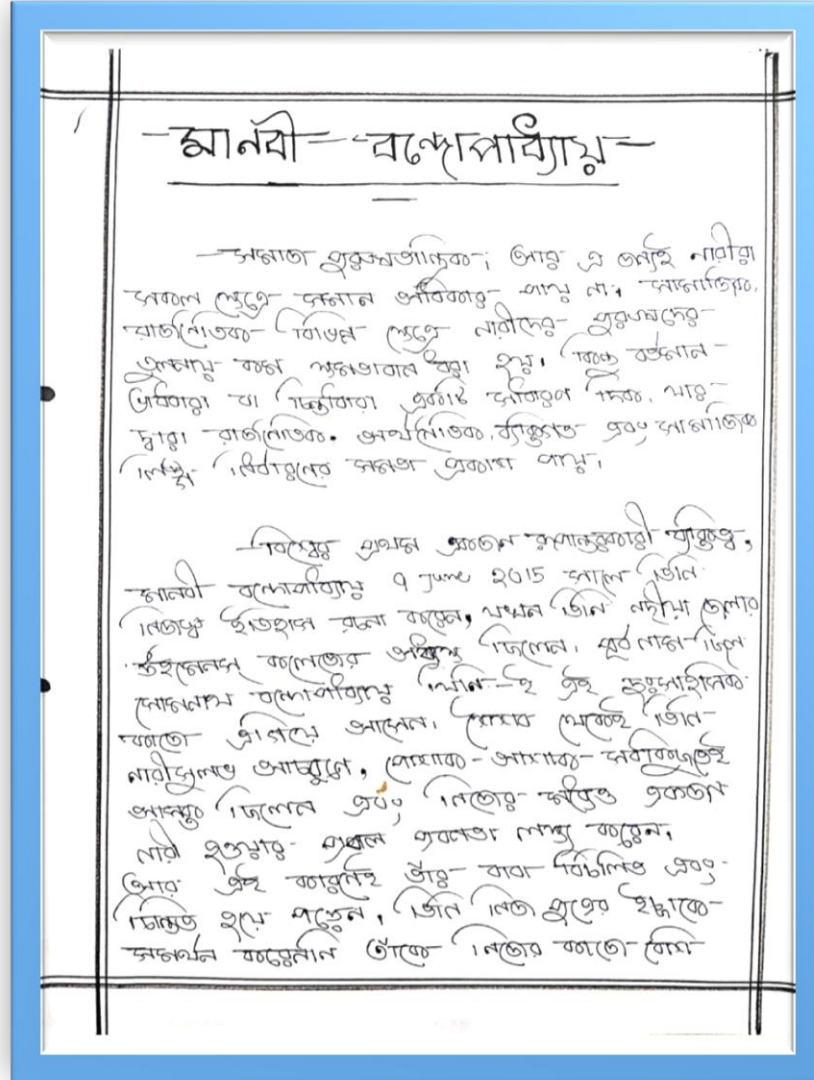 মানবী বন্দোপাধ্যায়
সমাজ পুরুষতান্ত্রিক; আর এ জন্যই নারীরা
সকল ক্ষেত্রে সমান অধিকার পায় না। সামাজিক,
রাজনৈতিক বিভিন্ন ক্ষেত্রে নারীদের পুরুষদের
তুলনায় কম ক্ষমতাবান ধরা হয়। কিন্তু বর্তমান
যা চিন্তাধারা একটি সাধারণ দিক, যার
দ্বারা রাজনৈতিক, অর্থনৈতিক, ব্যক্তিগত এবং সামাজিক
লিঙ্গ নির্ধারনের সমতা প্রকাশ পায়।
বিশ্বের প্রথম একজন রূপান্তরকামী ব্যক্তিত্ব,
মানবী বন্দোপাধ্যায় 9 June 2015 সালে তিনি
নিজস্ব ইতিহাস রচনা করেন, যখন তিনি নদীয়া জেলার
উইমেনস্ কলেজের অধ্যক্ষ ছিলেন। পূর্ব নাম ছিল
সোমনাথ বন্দোপাধ্যায় তিনি-ই এই দুঃসাহসিক
কাজে এগিয়ে আসেন। শৈশব থেকেই তিনি
নারীসুলভ আচরণে, পোশাক-আশাক সবকিছুতেই
আসক্ত ছিলেন এবং নিজের মধ্যেও একজন
নারী হওয়ার প্রবল প্রবনতা লক্ষ্য করেন।
আর এই কারনেই তাঁর বাবা বিচলিত এবং
চিন্তিত হয়ে পড়েন। তিনি নিজ পুত্রের ইচ্ছাকে
সমর্থন করেননি তাঁকে নিজের কাজে বেশি